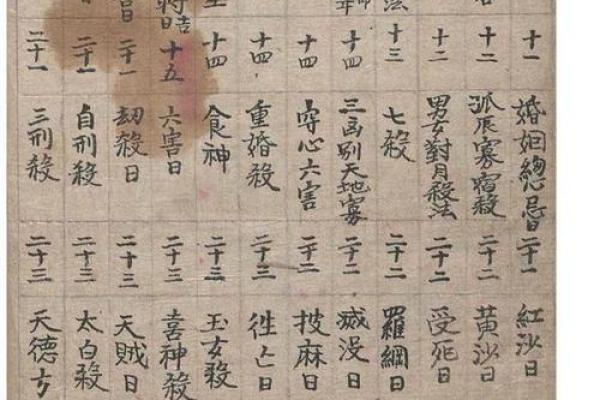 法
十一
十二
十二
十三
十四
十四
十四
十四
十五
二十一
二十一
二十一
婚姻總忌日
孤辰寡宿殺
男女對月殺法
七殺
三凶別天地寡
穿心六害
重婚殺
食神
六害日
劫殺日
自刑殺
三刑殺
二十一
二十二
二十二
二十二
二十二
二十二
二十三
二十三
二十三
二十三
二十三
二十三
紅沙日
黃沙日
受死日
羅網日
滅没日
披麻日
往亡日
玉女殺
喜神殺
天賊日
太白殺
天德方